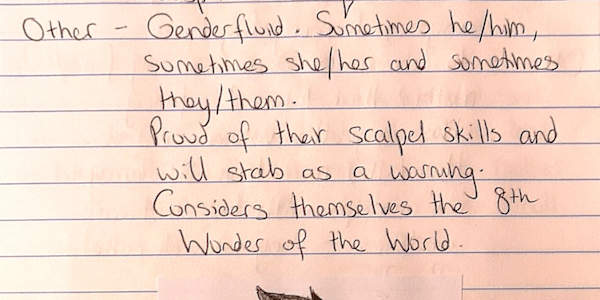 Other - Genderfluid. Sometimes he/him,
sometimes she/her and sometimes
they/them.
Proud of their scalpel skills and
will stab as a warning.
Considers themselves the 8th
Wonder of the World.